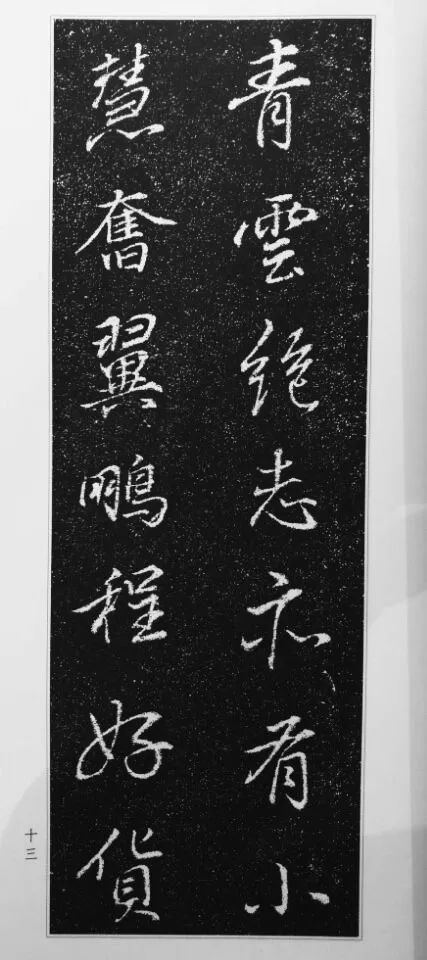 青雲絶志亦有小
慧奮翼鵬程好貨
十三